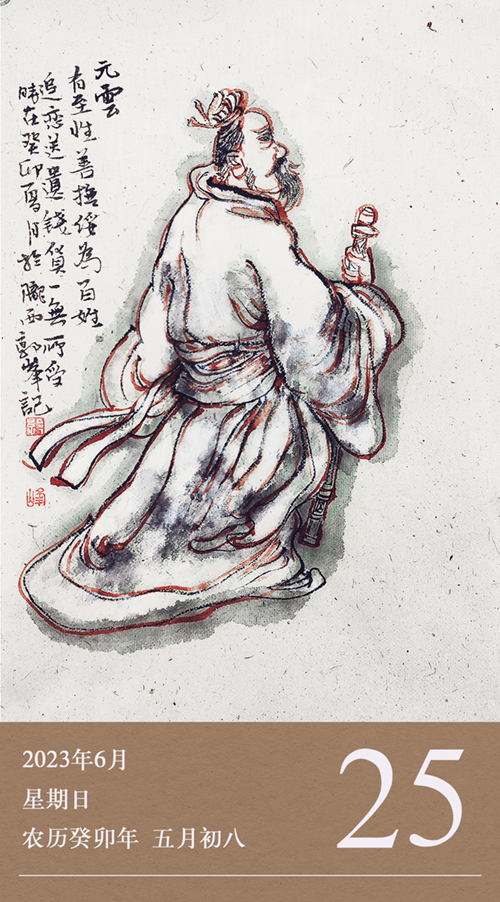 元雲
有至性善撫綏為百姓
追戀送遺錢貨一無所受
時在癸卯夏月於隴西郭峯記
2023年6月
星期日
农历癸卯年 五月初八
25